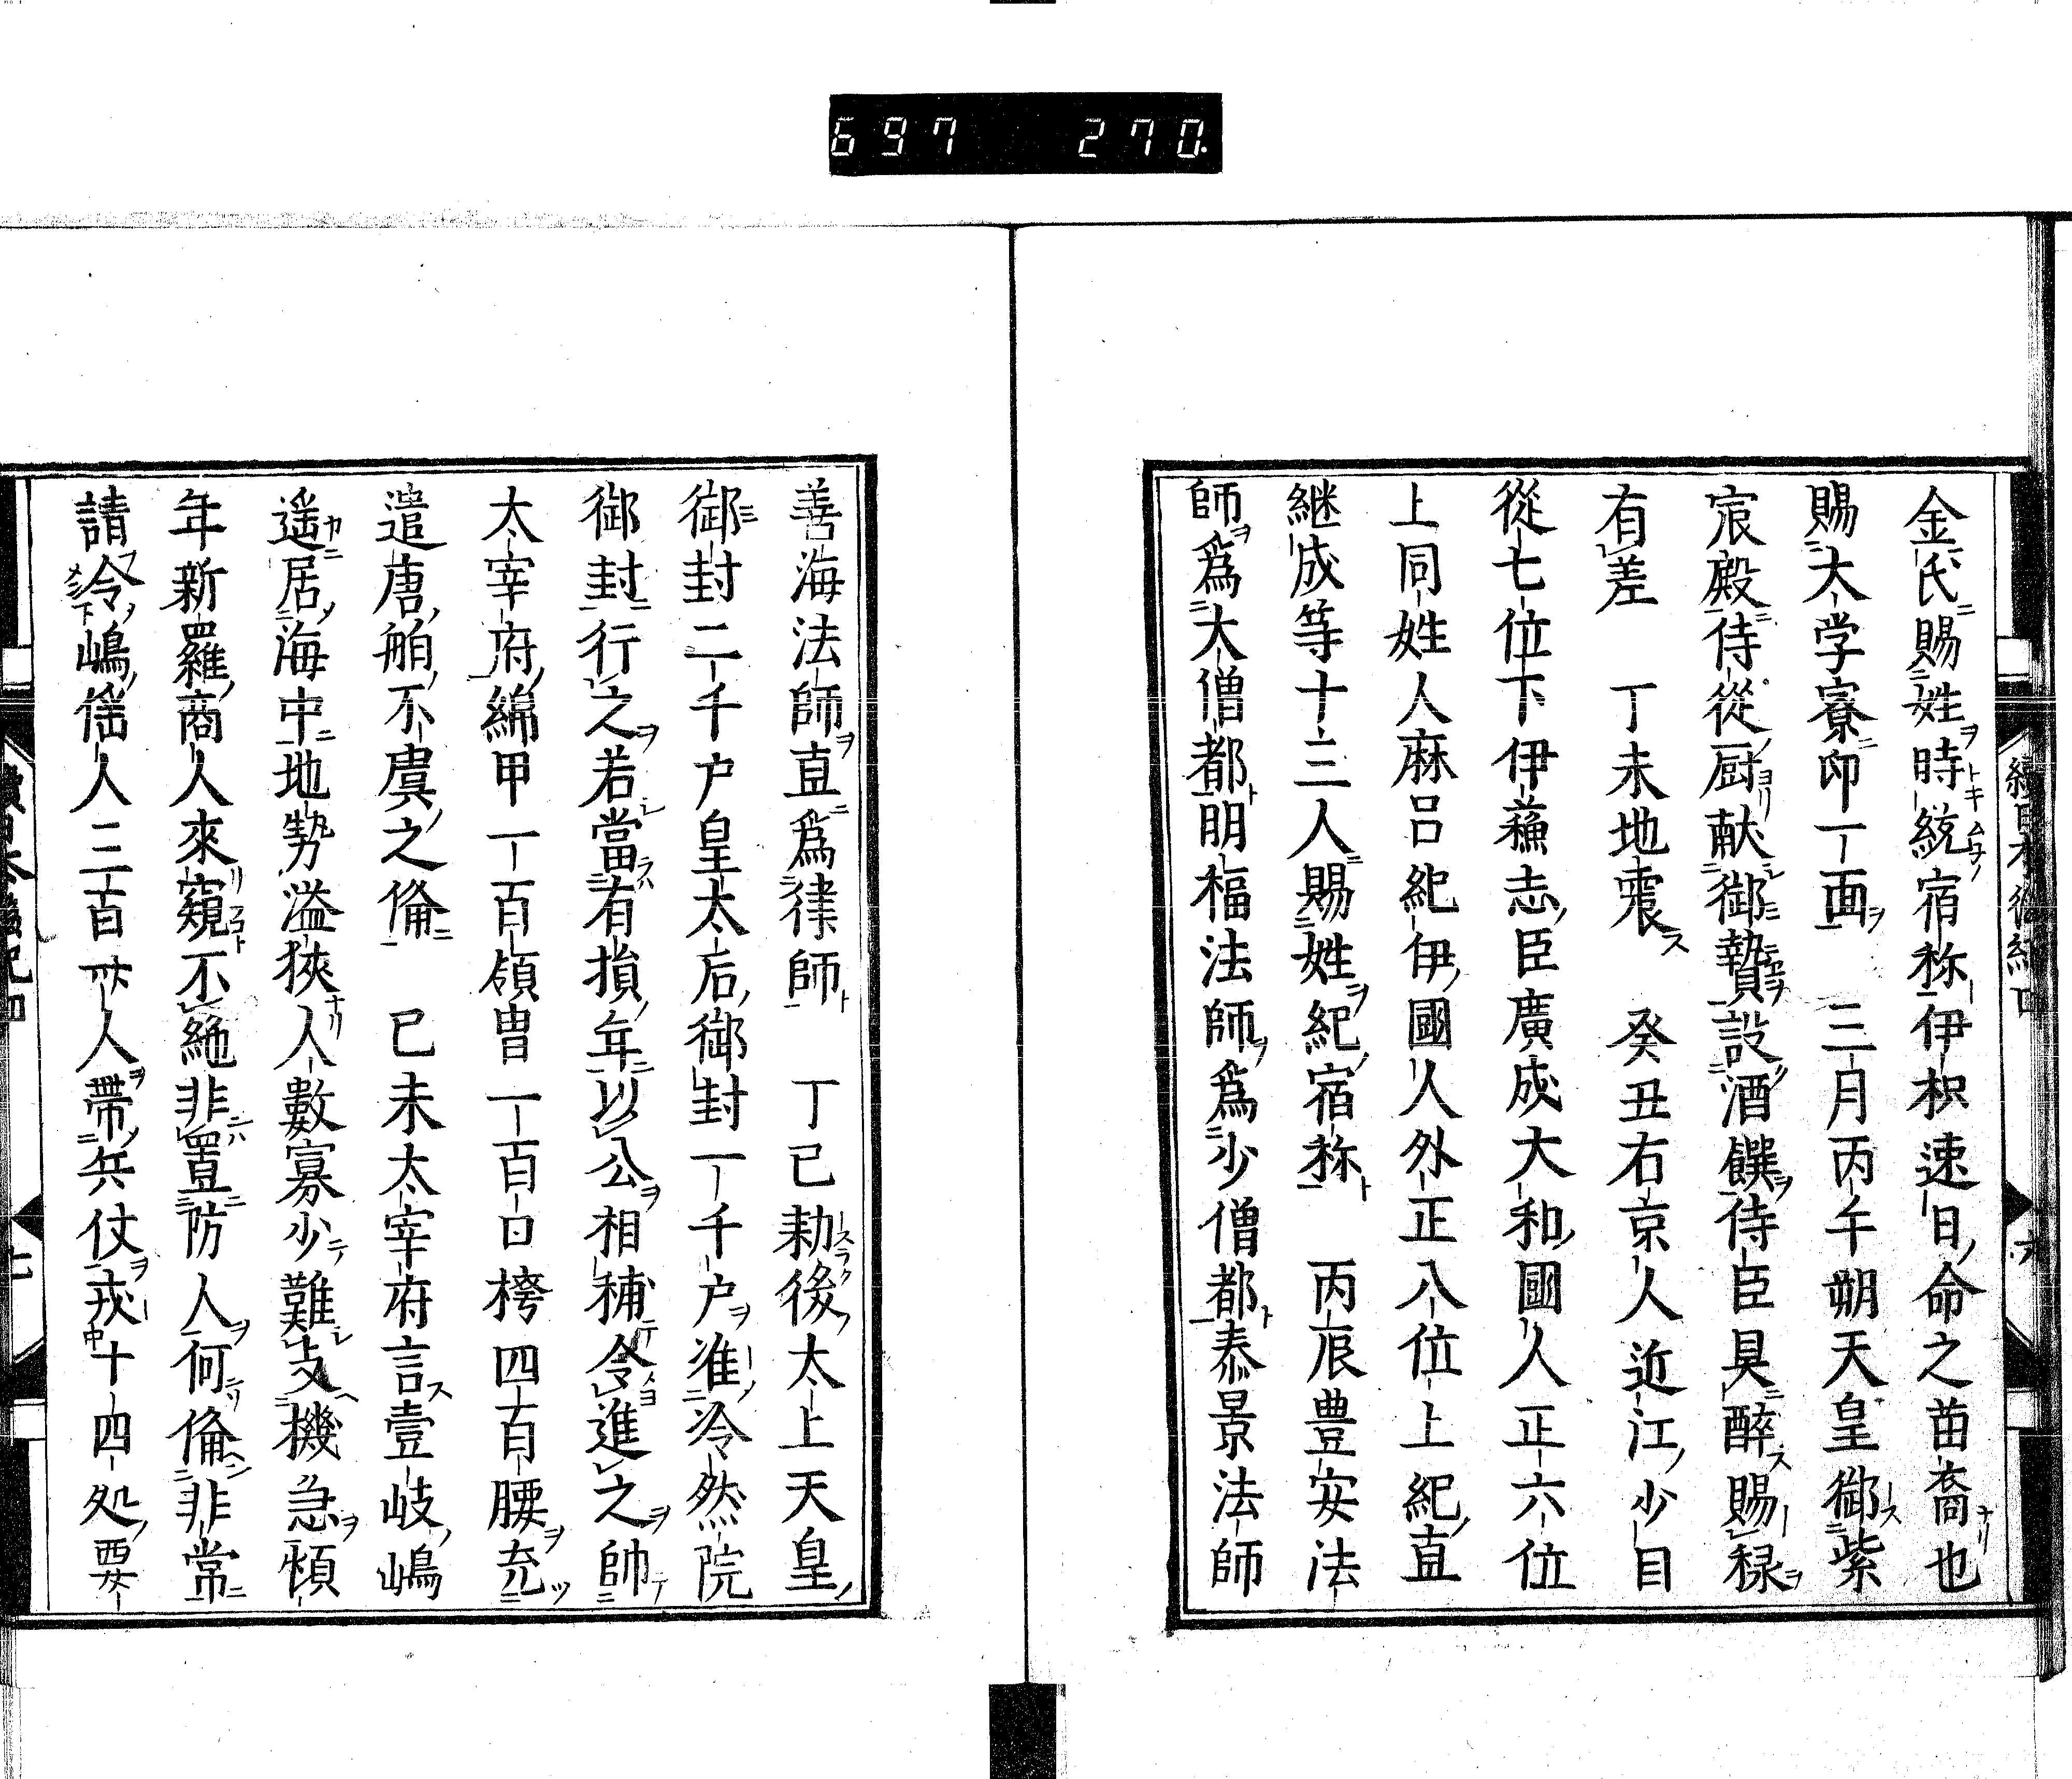 697 270
金氏賜姓時統宿祢伊枳速日命之苗裔也
賜大学寮印一面 三月丙午朔天皇御紫
宸殿侍從厨献御贄設酒饌侍臣具醉賜禄
有差 丁未地震 癸丑右京人近江少目
從七位下伊蘓志臣廣成大和國人正六位
上同姓人麻呂紀伊國人外正八位上紀直
継成等十三人賜姓紀宿祢 丙辰豊安法
師爲大僧都明福法師爲少僧都泰景法師
善海法師直爲律師 丁巳勅後太上天皇
御封二千户皇太后御封一千户准冷然院
御封行之若當有損年以公相補令進之帥
太宰府綿甲一百領冑一百口袴四百腰充
遣唐舶不虞之倫 已未太宰府言壹岐嶋
遥居海中地勢溢狹人數寡少難支機急頓
年新羅商人來窺不絶非置防人何倫非常
請令嶋徭人三百卅人帶兵仗戎十四処要